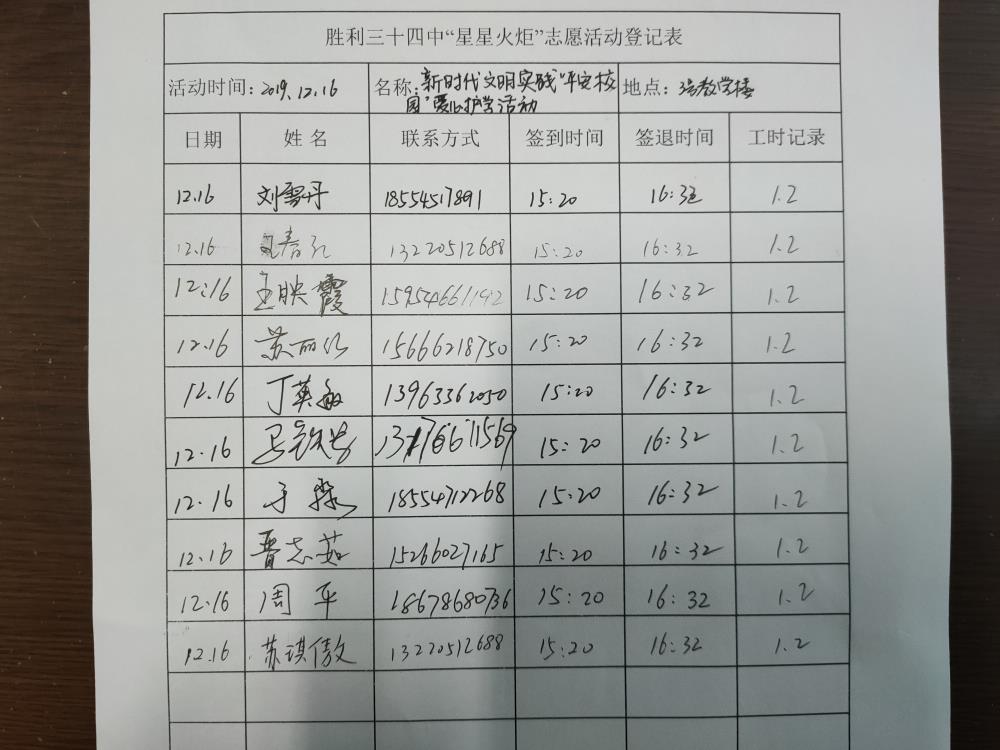 胜利三十四中“星星火炬”志愿活动登记表
活动时间：2019.12.16 名称：新时代文明实践“平安校园”爱心护学活动 地点：3号教学楼
日期 姓名 联系方式 签到时间 签退时间 工时记录
12.16 刘雪丹 18554517891 15:20 16:32 1.2
12.16 13220512688 15:20 16:32 1.2
12:16 王映霞 15954661192 15:20 16:32 1.2
12.16 苏丽红 15666218750 15:20 16:32 1.2
12.16 丁英敏 13963362050 15:20 16:32 1.2
12.16 15:20 16:32 1.2
12.16 于淼 18554712268 15:20 16:32 1.2
12.16 晋志茹 15266027165 15:20 16:32 1.2
12.16 周平 18678680736 15:20 16:32 1.2
12.16 苏琪傲 13220512688 15:20 16:32 1.2